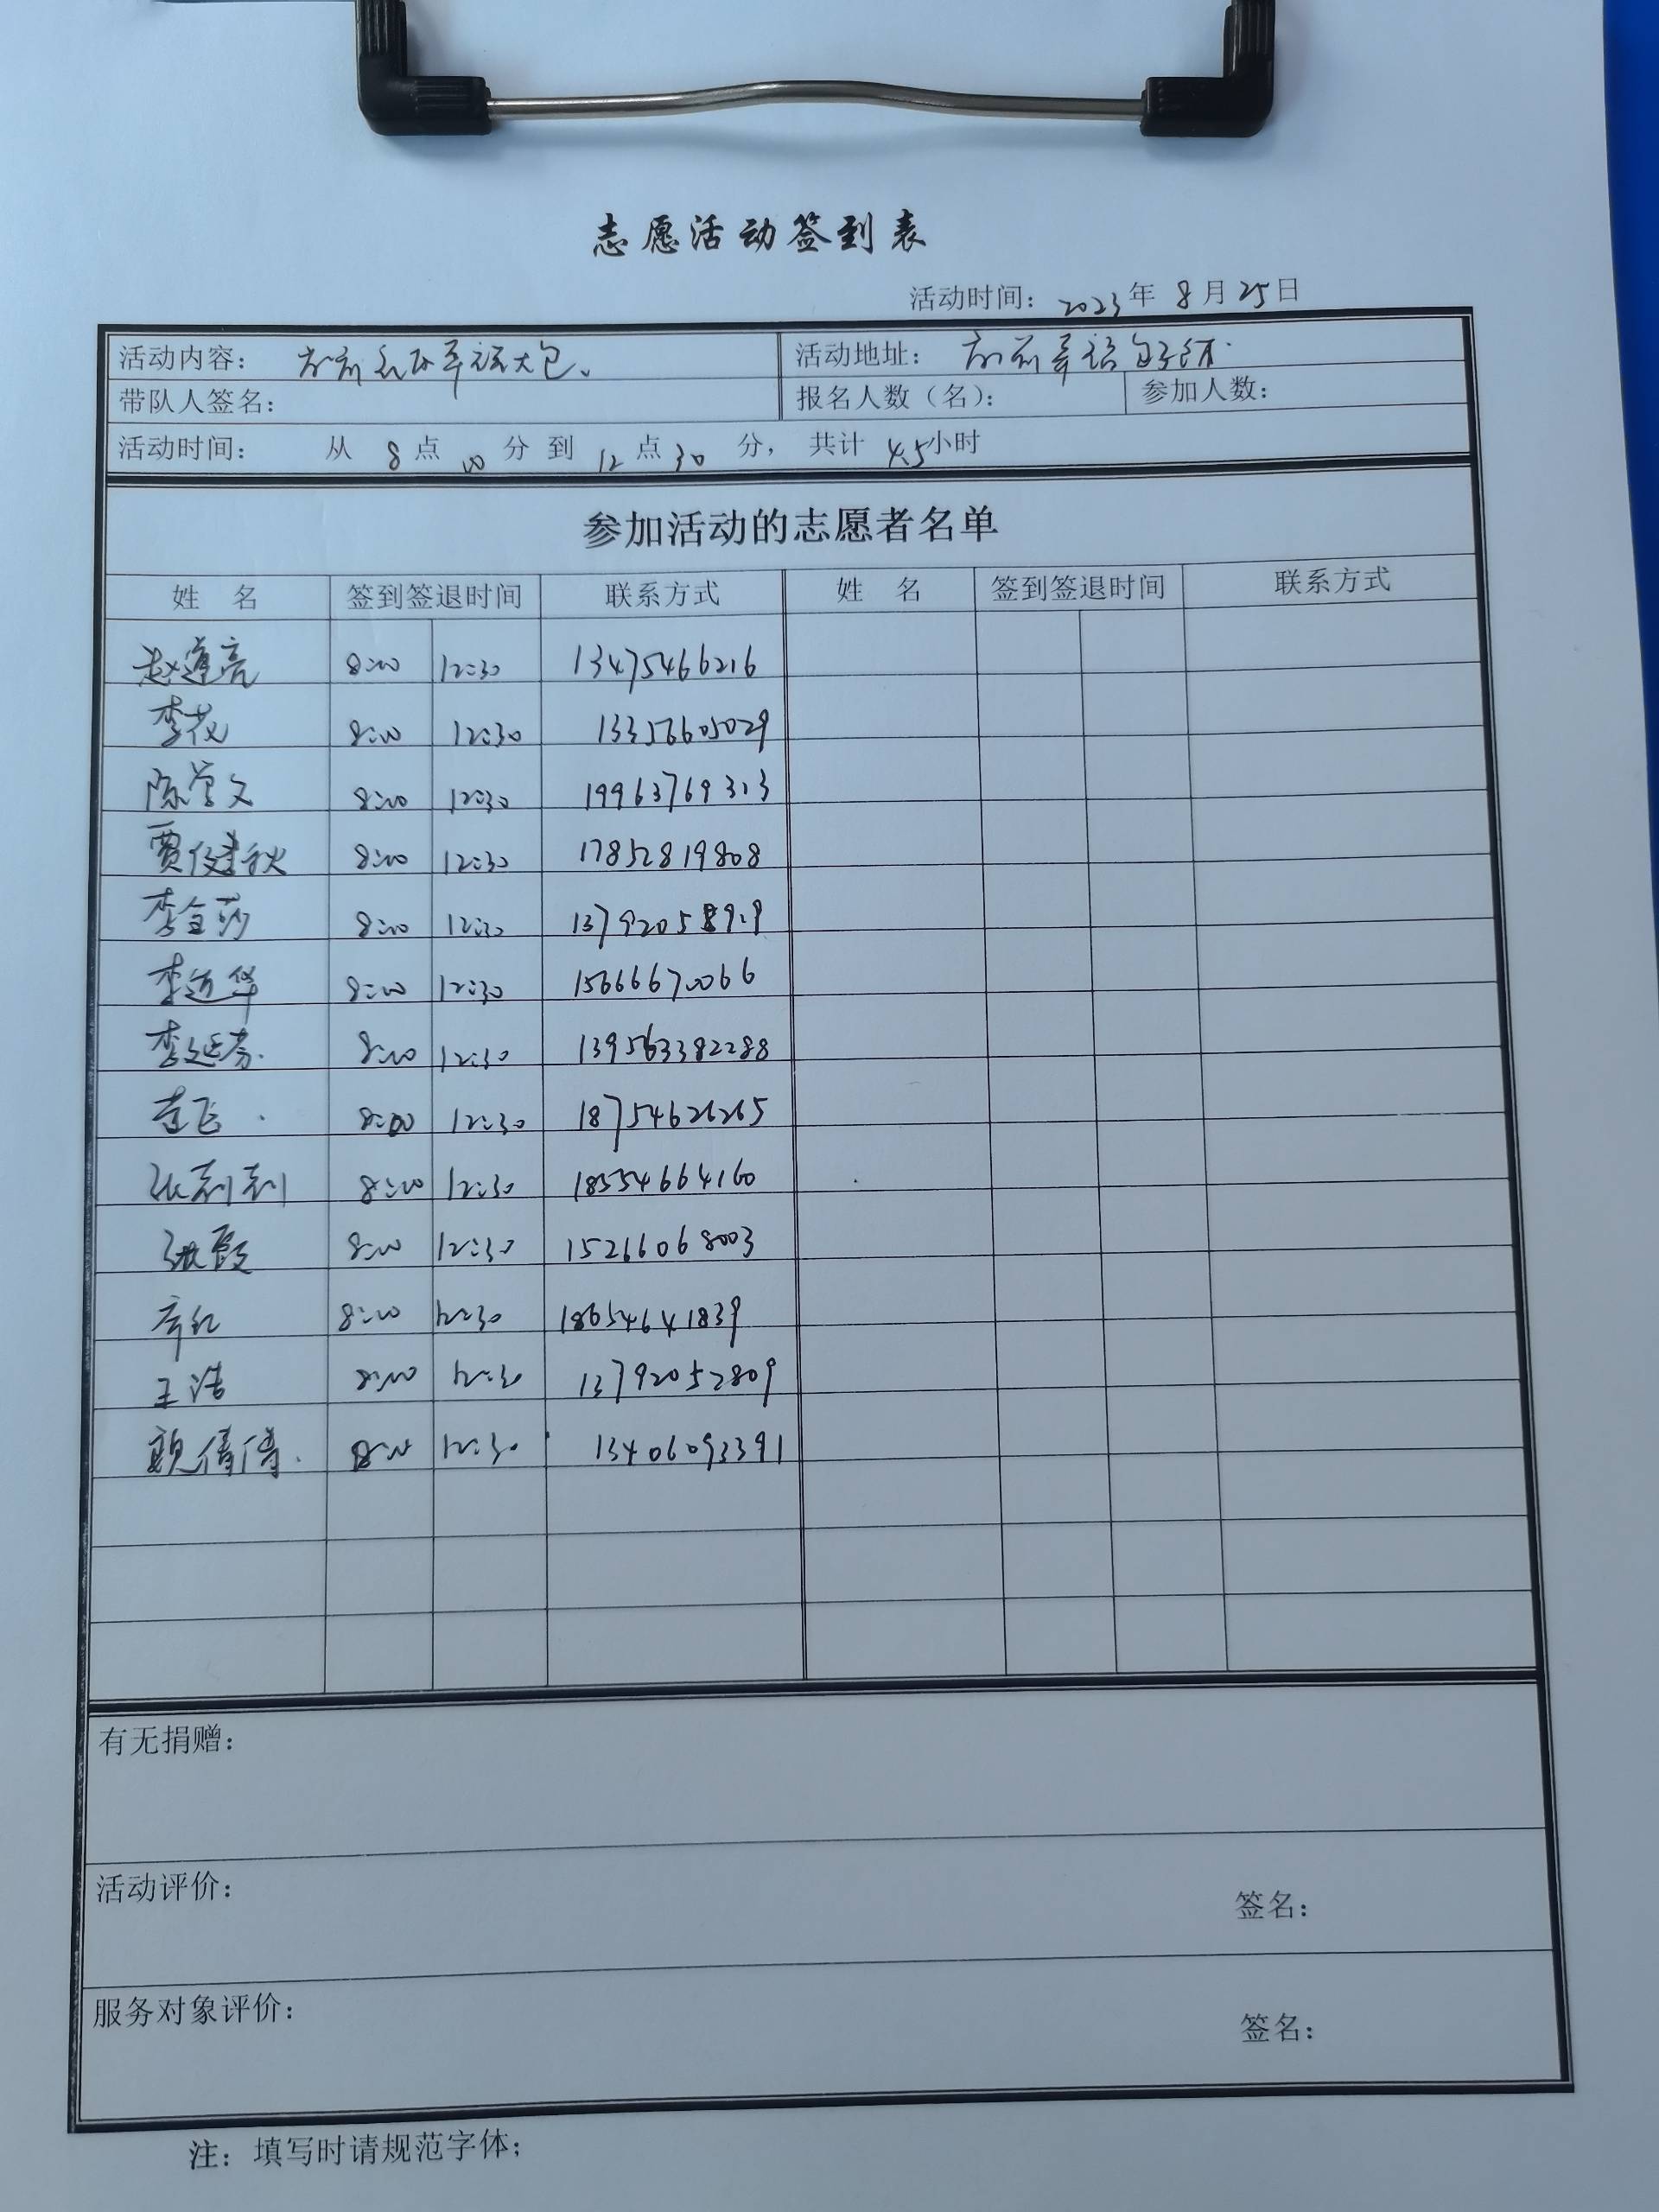 志愿活动签到表
活动时间：2023年 8月25日
活动内容： 大包。 活动地址：
带队人签名： 报名人数（名）： 参加人数：
活动时间： 从 8点00分到12点30分， 共计4.5小时
参加活动的志愿者名单
姓 名 签到签退时间 联系方式 姓 名 签到签退时间 联系方式
赵莲亮 8:00 12:30 13475466216
李花 8:00 12:30 13356605029
陈学文 8:00 12:30 19963769313
贾健秋 8:00 12:30 17852819808
李金莎 8:00 12:30 13792058929
李迎华 8:00 12:30 15666670066
李延芬 8:00 12:30 139563382288
8:00 12:30 18754626265
张利利 8:00 12:30 18554664160
张霞 8:00 12:30 15266068003
8:00 12:30 18654641839
王浩 8:00 12:30 13792052809
魏倩倩 8:00 12:30 13406093391
有无捐赠：
活动评价：
签名：
服务对象评价：
签名：
注：填写时请规范字体；